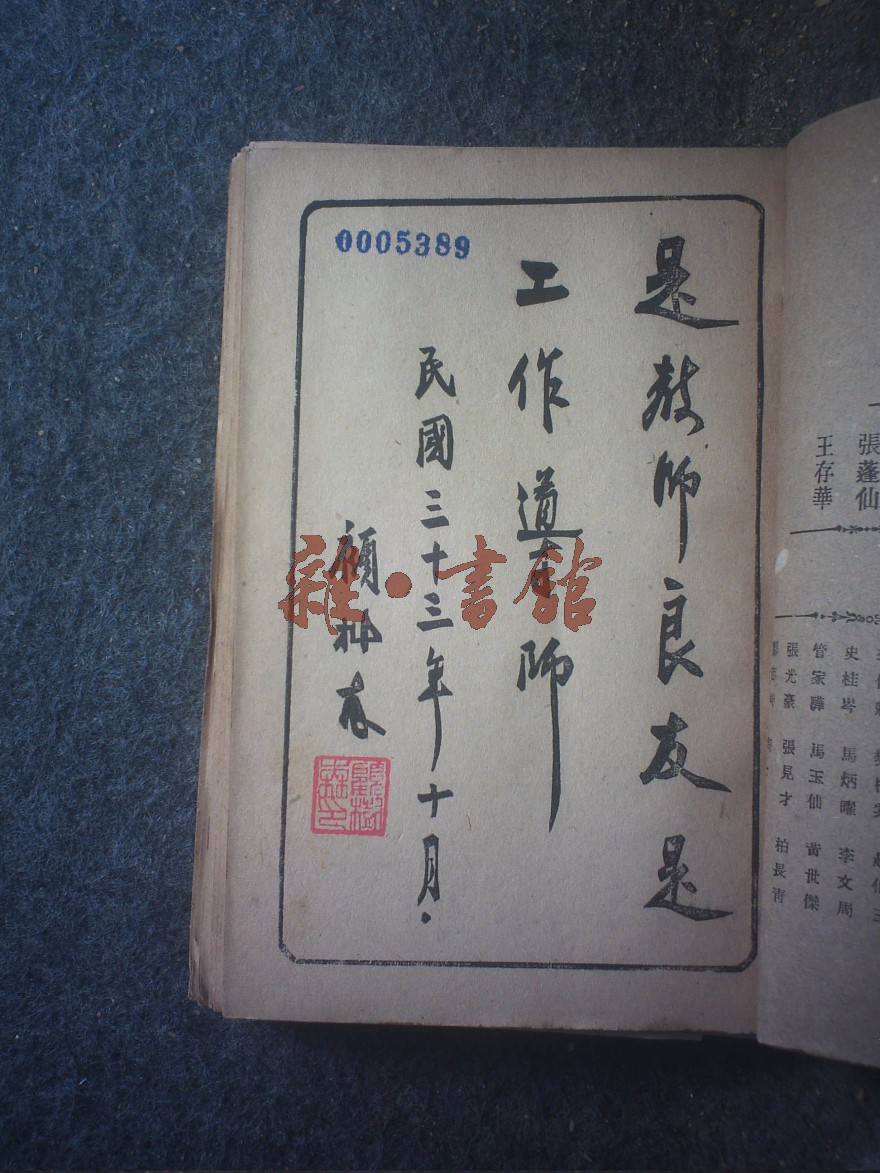 張蓬仙
王存華
史桂岑 馬炳曜 李文周
管家驊 馬玉仙 黃世傑
張光豪 張見才 柏長青
是教師良友是
工作導師
民國三十三年十月.
顧樹森
顧樹森印
0005389
雜·書館